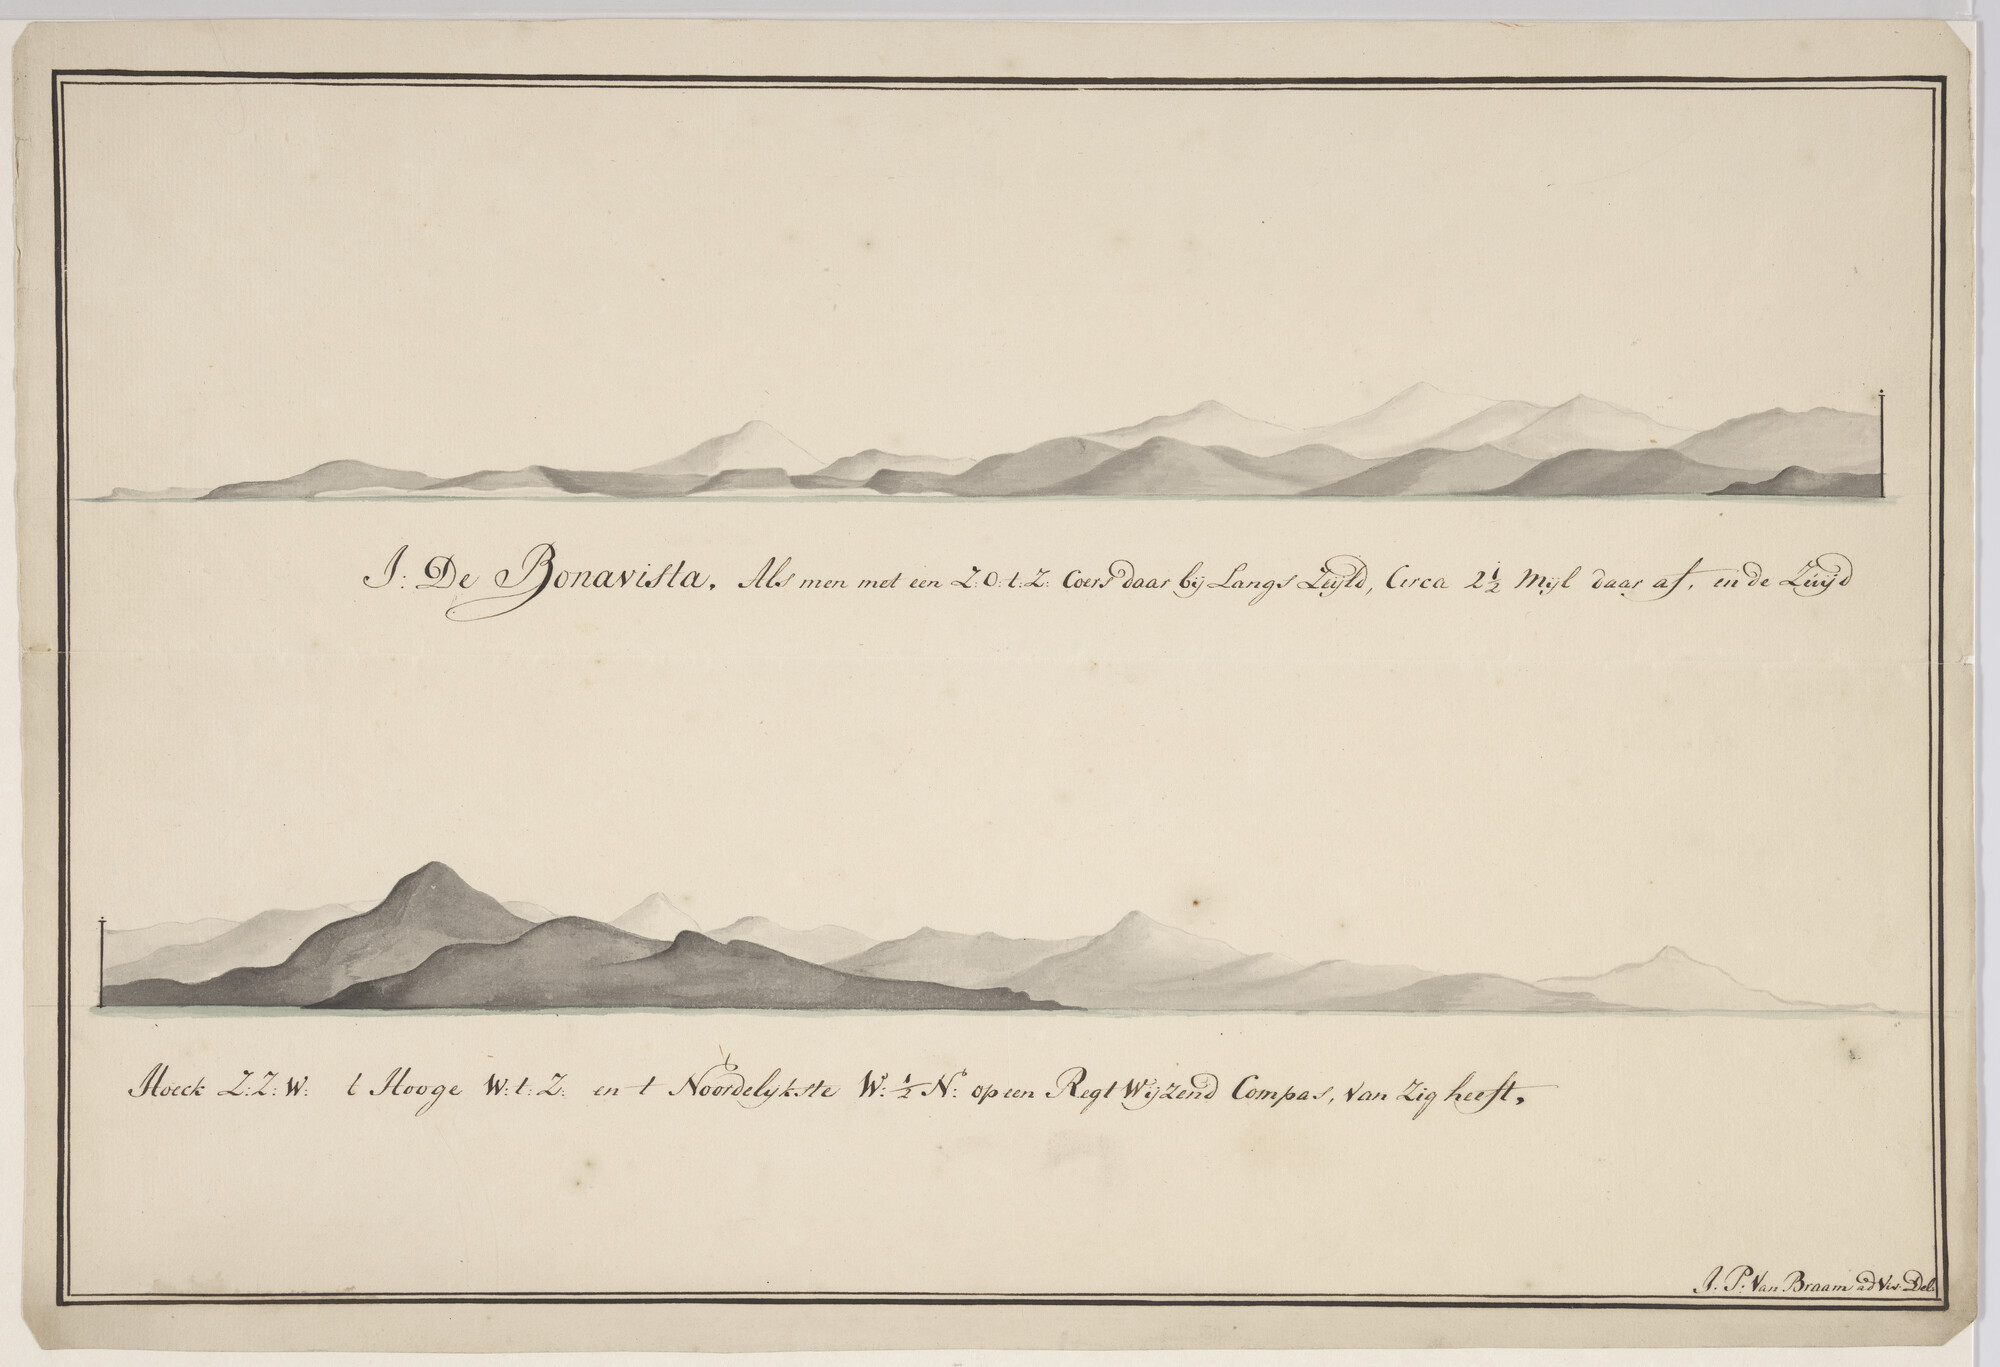 I: De Bonavista. Als men met een Z:O:t:Z: Coers daar bij Langs Zeijld, Circa 2½ Mijl daar af, en de Zuijd
Hoeck Z:Z:W: t Hooge W:t:Z: en t Noordelijkste W:½N: op een Regt Wijzend Compas, van Zig heeft.
J. P. Van Braam ad Viv Del: